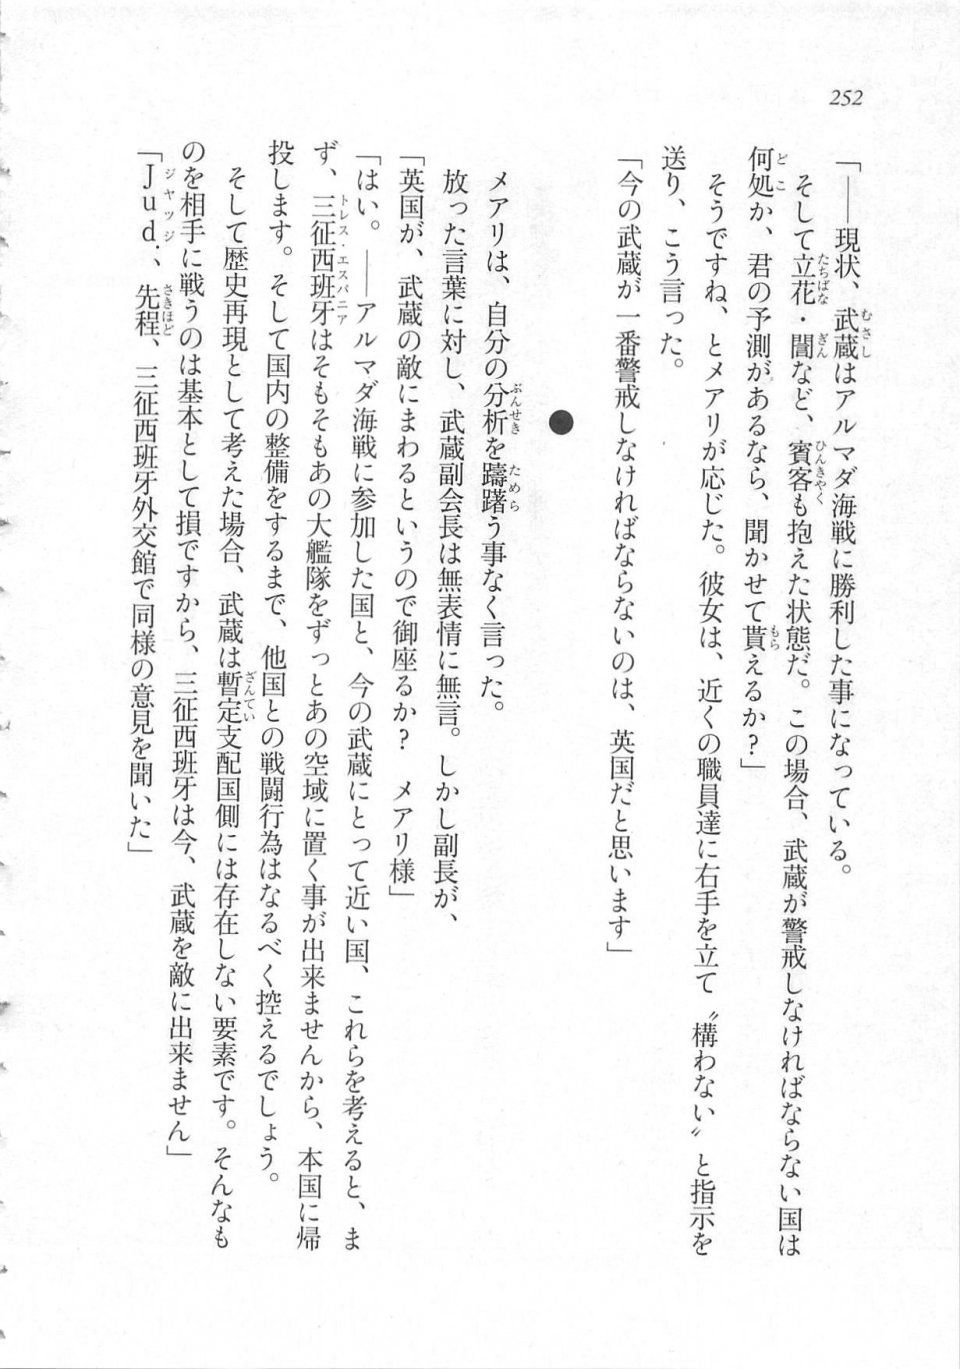 252
「――現状、武蔵はアルマダ海戦に勝利した事になっている。
そして立花・誾など、賓客も抱えた状態だ。この場合、武蔵が警戒しなければならない国は
何処か、君の予測があるなら、聞かせて貰えるか？」
そうですね、とメアリが応じた。彼女は、近くの職員達に右手を立て〝構わない〟と指示を
送り、こう言った。
「今の武蔵が一番警戒しなければならないのは、英国だと思います」
●
メアリは、自分の分析を躊躇う事なく言った。
放った言葉に対し、武蔵副会長は無表情に無言。しかし副長が、
「英国が、武蔵の敵にまわるというので御座るか？　メアリ様」
「はい。――アルマダ海戦に参加した国と、今の武蔵にとって近い国、これらを考えると、ま
ず、三征西班牙はそもそもあの大艦隊をずっとあの空域に置く事が出来ませんから、本国に帰
投します。そして国内の整備をするまで、他国との戦闘行為はなるべく控えるでしょう。
そして歴史再現として考えた場合、武蔵は暫定支配国側には存在しない要素です。そんなも
のを相手に戦うのは基本として損ですから、三征西班牙は今、武蔵を敵に出来ません」
「Ｊｕｄ．、先程、三征西班牙外交館で同様の意見を聞いた」